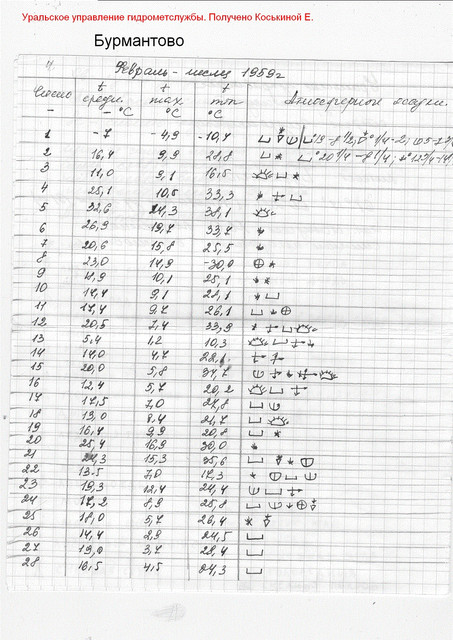 Уральское управление гидрометслужбы. Получено Коськиной Е.
Бурмантово
Февраль - месяц 1959г
Число t средн. -°C t max °C t min °C Атмосферные осадки.
1 -7 -4,9 -10,7
2 16,4 9,9 28,8
3 11,0 9,1 16,5
4 25,1 10,5 33,3
5 32,6 24,3 38,1
6 26,9 19,7 33,7
7 20,6 15,8 25,5
8 23,0 14,9 -30,0
9 18,9 10,1 25,1
10 14,4 9,1 22,1
11 17,4 9,7 26,1
12 20,5 7,4 33,9
13 5,4 1,2 10,3
14 14,0 4,7
15 20,0 5,8 31,7
16 12,4 5,7 20,2
17 17,5 7,0 27,8
18 13,0 8,4 21,7
19 16,4 9,9 20,8
20 25,4 16,9 30,0
21 24,3 15,3 35,6
22 13.5 7,0 17,3
23 19,3 12,4 24,4
24 17,2 8,9 25,8
25 18,0 5,7 26,4
26 14,4 2,9 24,5
27 19,0 3,7 28,4
28 16,5 4,5 24,3